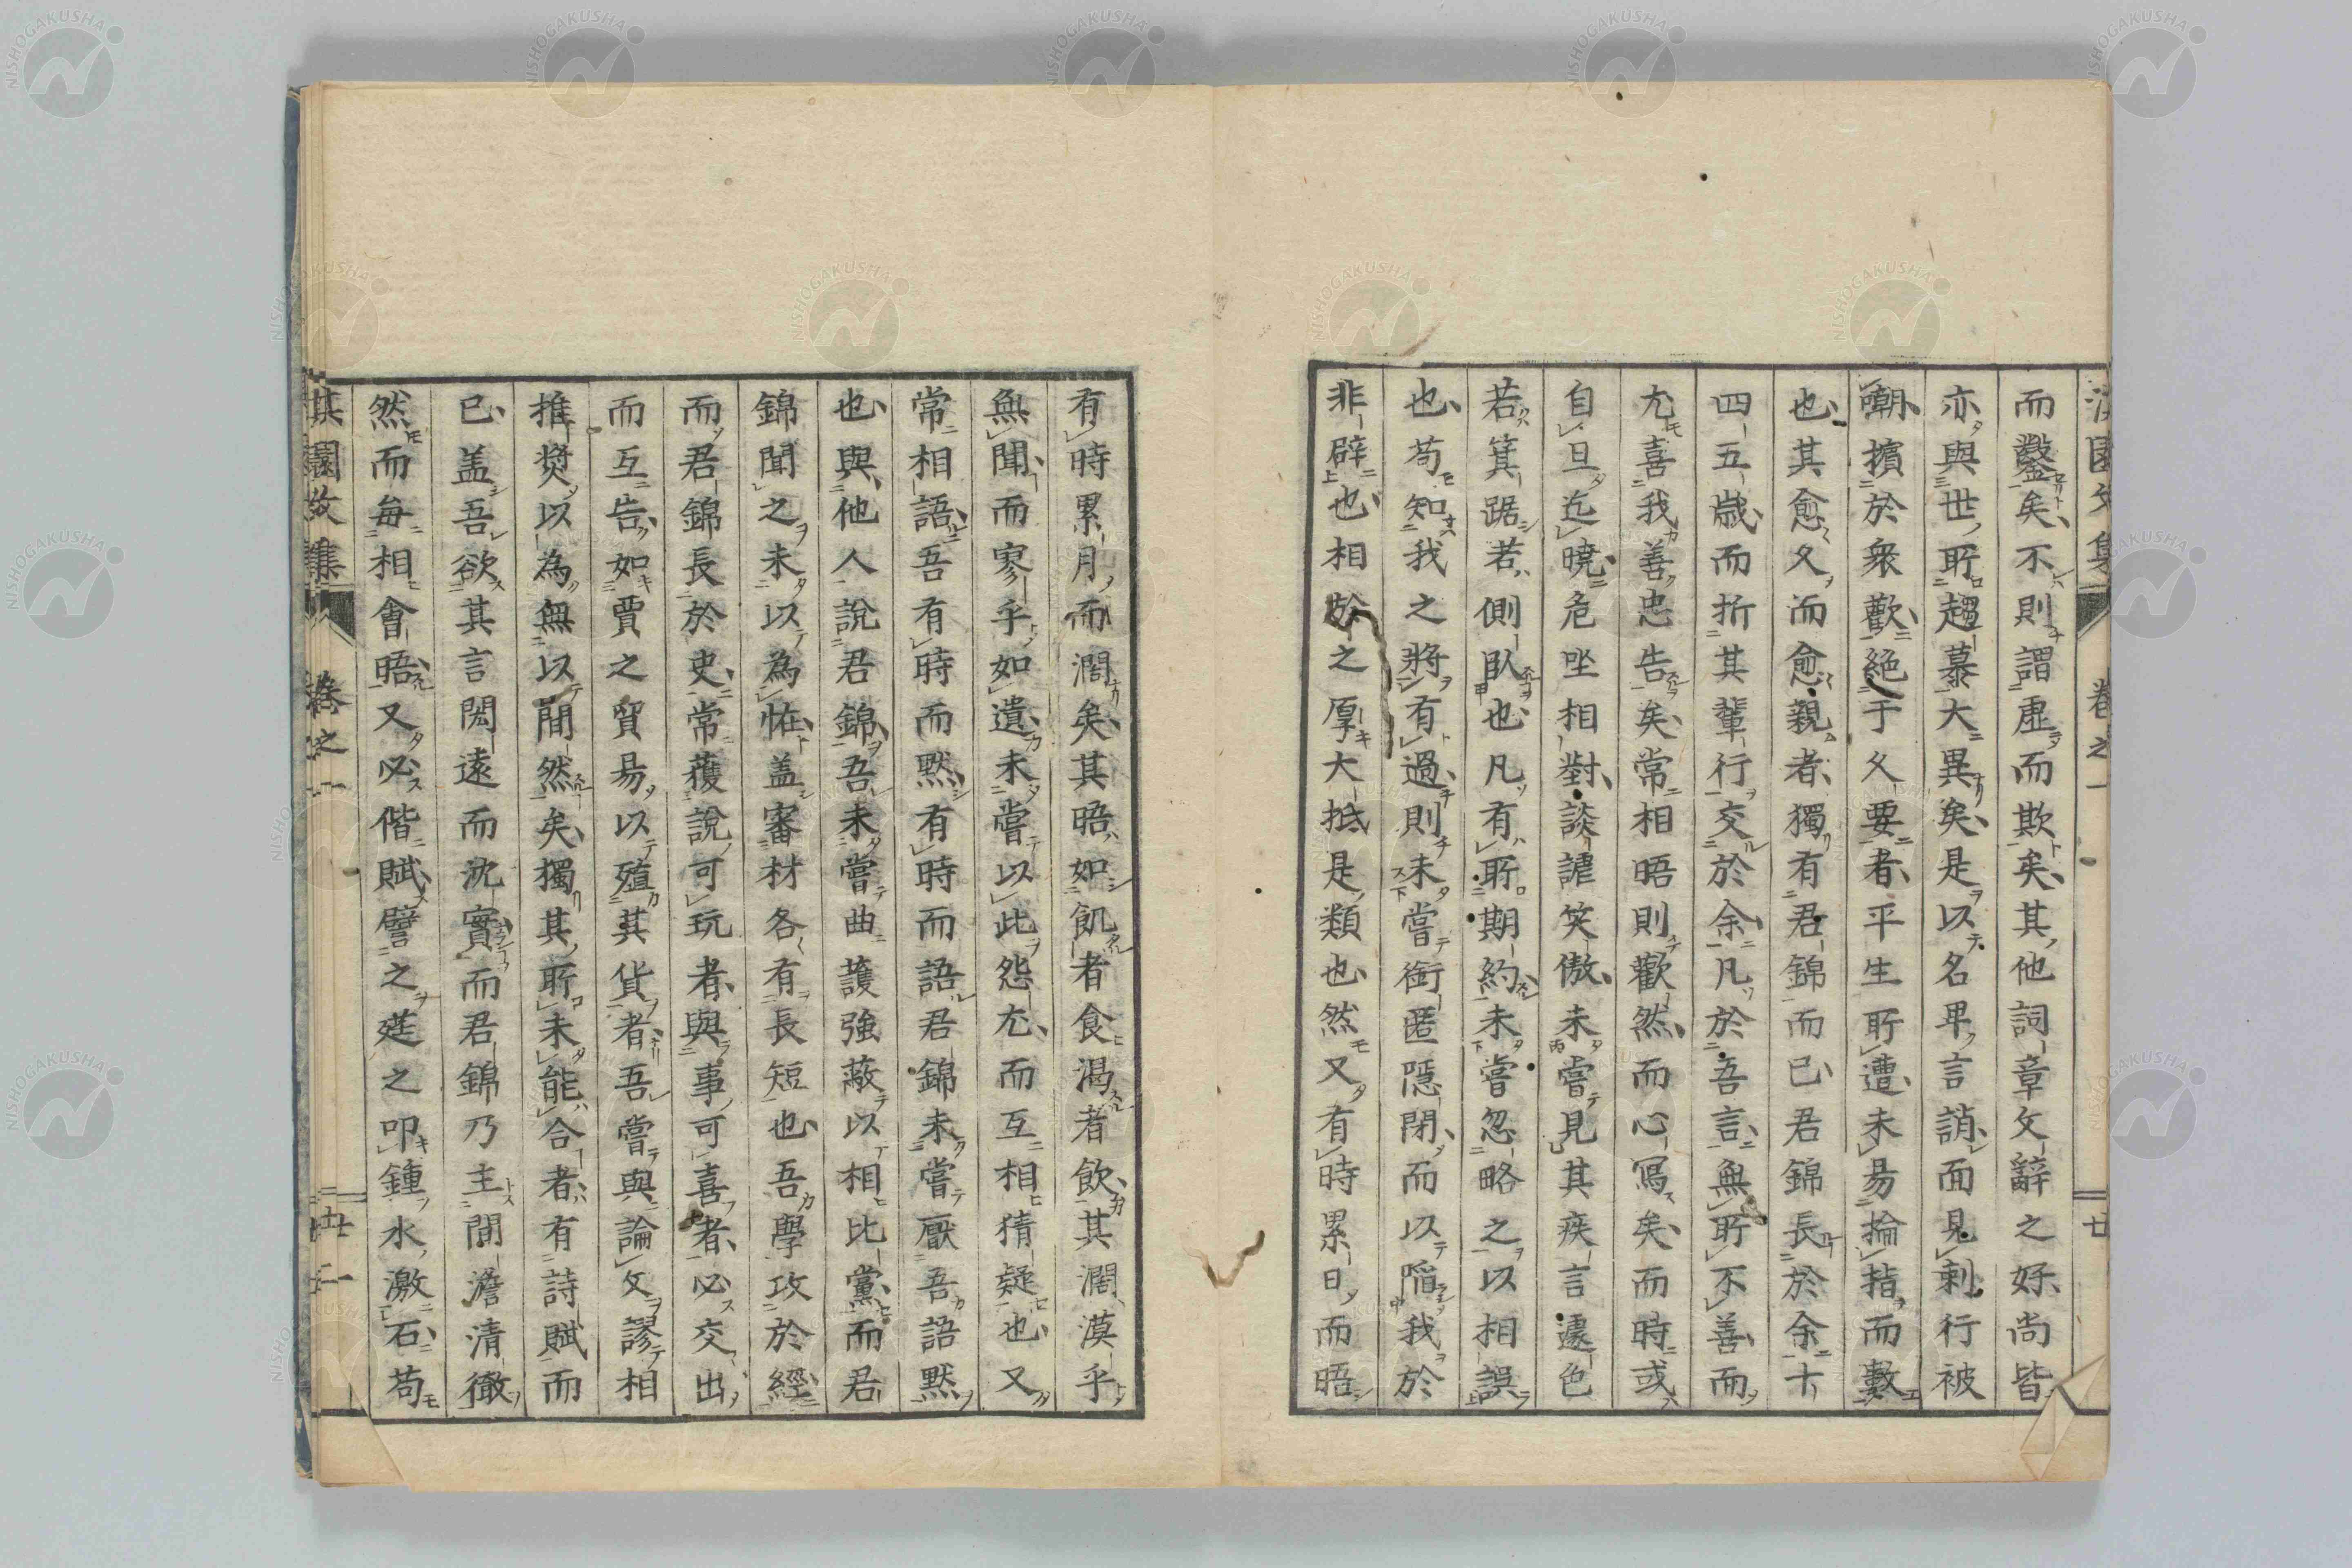 而鑿矣不則謂虛而欺矣其他詞章文辭之好尚皆
亦與世所趨慕大異矣是以名卑言誚面見剌行被
嘲擯於衆歡絕于久要者平生所遭未易掄指而數
也其愈久而愈親者獨有君錦而已君錦長於余十
四五歲而折其輩行交於余凡於吾言無所不善而
尤喜我善忠告矣常相晤則歡然而心寫矣而時或
自旦迄曉危坐相對談謔笑傲未嘗見其疾言遽色
若箕踞若側臥也凡有所期約未嘗忽略之以相誤
也苟知我之將有過則未嘗銜匿隱閉而以陷我於
非辟也相於之厚大抵是類也然又有時累日而晤
有時累月而濶矣其晤如飢者食渴者飲其濶漠乎
無聞而寥乎如遺未嘗以此怨尤而互相猜疑也又
常相語吾有時而默有時而語君錦未嘗厭吾語默
也與他人說君錦吾未嘗曲護強蔽以相比黨而君
錦聞之未以為怪盖審材各有長短也吾學攻於經
而君錦長於史常獲說可玩者與事可喜者必交出
而互告如賈之貿易以殖其貨者吾嘗與論文謬相
推奬以為無以間然矣獨其所未能合者有詩賦而
已盖吾欲其言閎遠而沈實而君錦乃主間澹清徹
然而每相會晤又必偕賦譬之莛之叩鍾水激石苟
淇園文集 卷之一 廿
淇園文集 卷之一